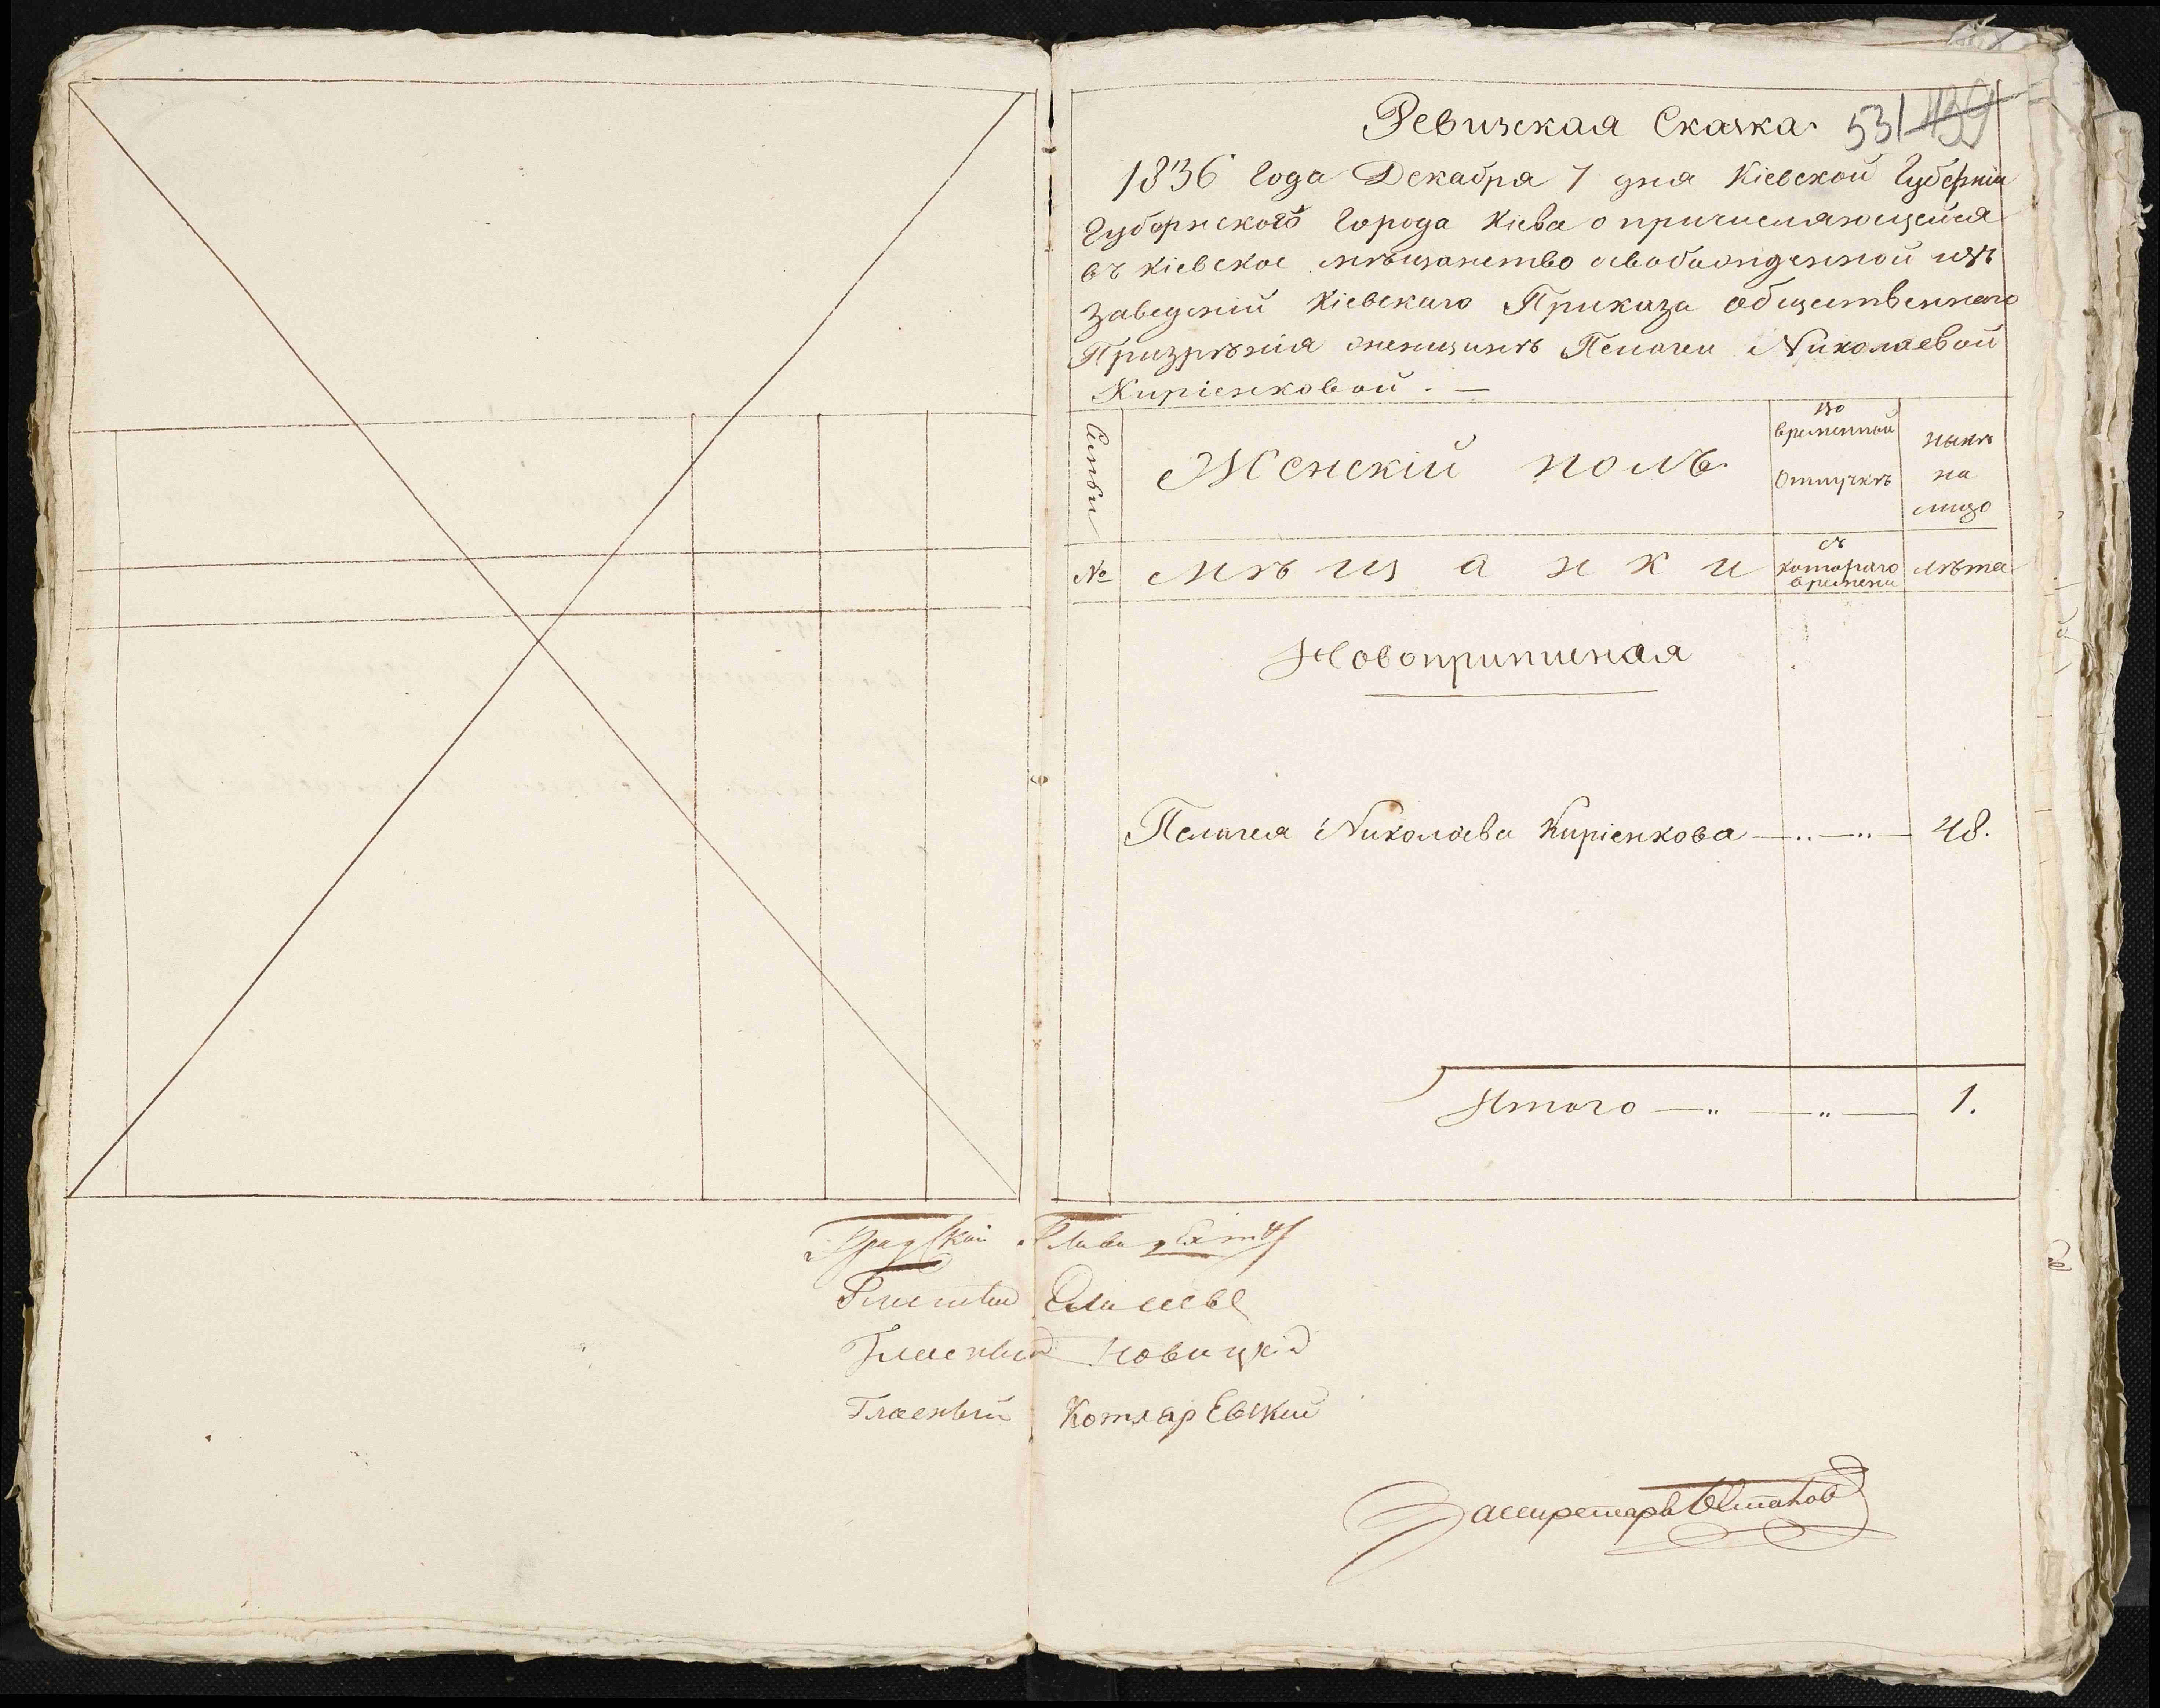 Ревизская Сказка 531 439
1836 Года Декабря 7 дня Кіевской Губерніи
Губернского Города Кіева о причисляющейся
въ Кіевское мѣщанство освобожденной изъ
заведеній Кіевскаго Приказа общественнаго
Призрѣнія женщинѣ Пелагеи Николаевой
Киріенковой. —
Семьи
Женскій полъ
Во временной Отлучкѣ
нынѣ на лицо
№
Мѣщанки
съ котораго времени
лѣта
Новоприписная
Пелагея Николаева Киріенкова — „ — „ — 48.
Итого — „ — „ — 1.
Градской Глава
Гласный Елисеевъ
Гласный Новицкій
Гласный Котляревский